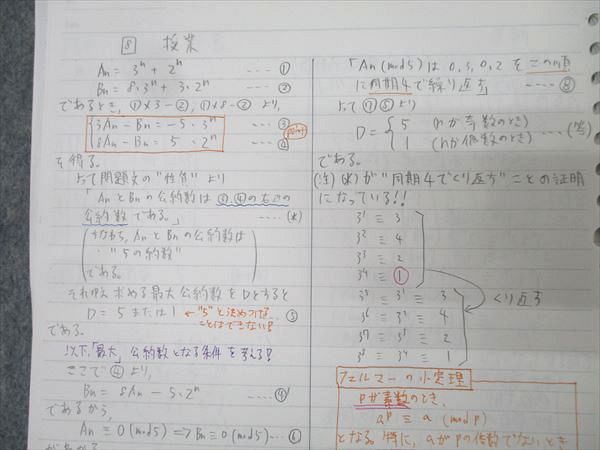 8 授業
An = 3^n + 2^n ---- ①
Bn = 8・3^n + 3・2^n ---- ②
であるとき, ①×3 - ②, ①×8 - ② より,
3An - Bn = -5・3^n ---- ③
8An - Bn = 5・2^n ---- ④
point
を得る。
よって問題文の"性質"より
「AnとBnの公約数は③,④の右辺の
公約数である。」 ---- (*)
(すなわち, AnとBnの公約数は
"5の約数"
である。)
それゆえ求める最大公約数をDとすると
D = 5 または 1 ←"5"と決めつける ---⑤
ことはできない!
である。
以下,「最大」公約数となる条件を考える!
ここで④より,
Bn = 8An - 5・2^n ---- ④'
であるから,
An ≡ 0 (mod5) ⇒ Bn ≡ 0 (mod5) ---⑥
「An (mod5) は 0, 3, 0, 2 をこの順
に周期4で繰り返す」 ---- ⑧
よって⑦⑤より
D = { 5 (nが奇数のとき)
1 (nが偶数のとき) ---(答)
である。
(注) が"周期4でくり返す"ことの証明
になっている!!
3^1 ≡ 3
3^2 ≡ 4
3^3 ≡ 2
3^4 ≡ 1
くり返す
3^5 ≡ 3^1 ≡ 3
3^6 ≡ 3^2 ≡ 4
3^7 ≡ 3^3 ≡ 2
3^8 ≡ 3^4 ≡ 1
フェルマーの小定理
Pが素数のとき,
a^p ≡ a (mod p)
となる。特に, aがPの倍数でないとき